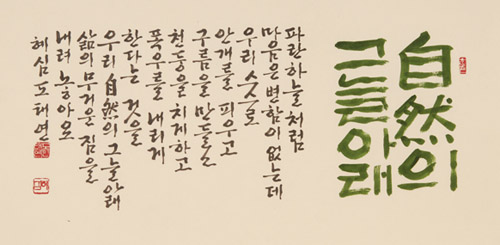 自然의
그늘아래
파란하늘처럼
마음은 변함이 없는데
우리 스스로
안개를 피우고
구름을 만들고
천둥을 치게하고
폭우를 내리게
한다는 것을
우리 自然의 그늘아래
삶의 무거운 짐을
내려 놓아요
혜심 도태연